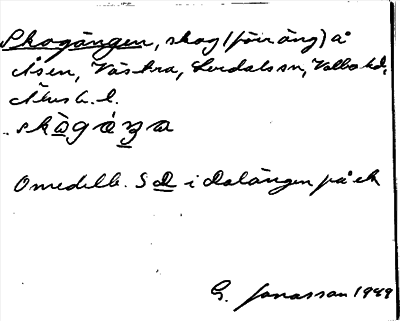 Skogängen, skog (förr äng) å
Åsen, Västra, Lerdals sn, Valbo hd,
Älvsb. l.
skògáŋa
Omedelb. S D i dalängen på ek
G. Jonasson 1949